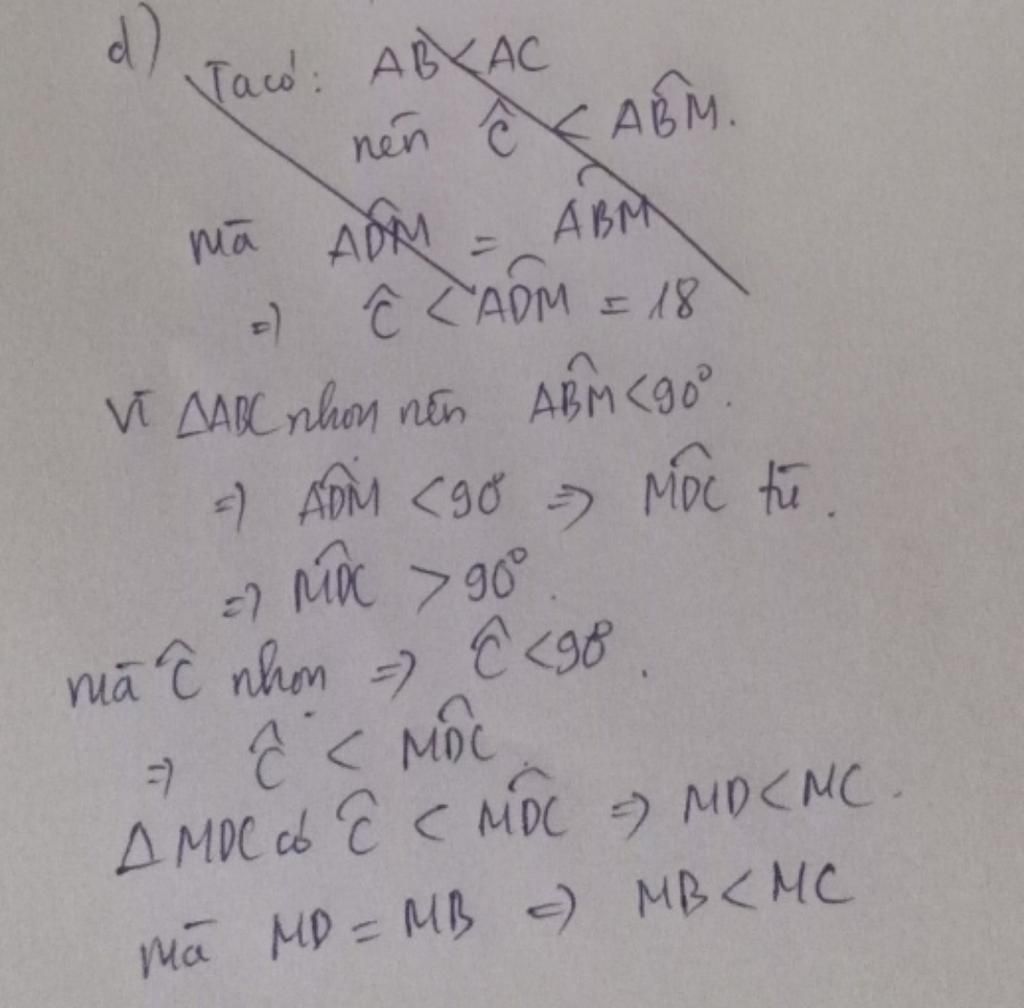 d)
Ta có: AB < AC
nên Ĉ < AB̂M.
mà AD̂M = AB̂M
=) Ĉ < AD̂M = 18
Vì ΔABC nhọn nên AB̂M < 90°.
=) AD̂M < 90° => MD̂C tù.
=) MD̂C > 90°.
mà Ĉ nhọn => Ĉ < 90°.
=) Ĉ < MD̂C
Δ MDC có Ĉ < MD̂C => MD < MC.
mà MD = MB => MB < MC